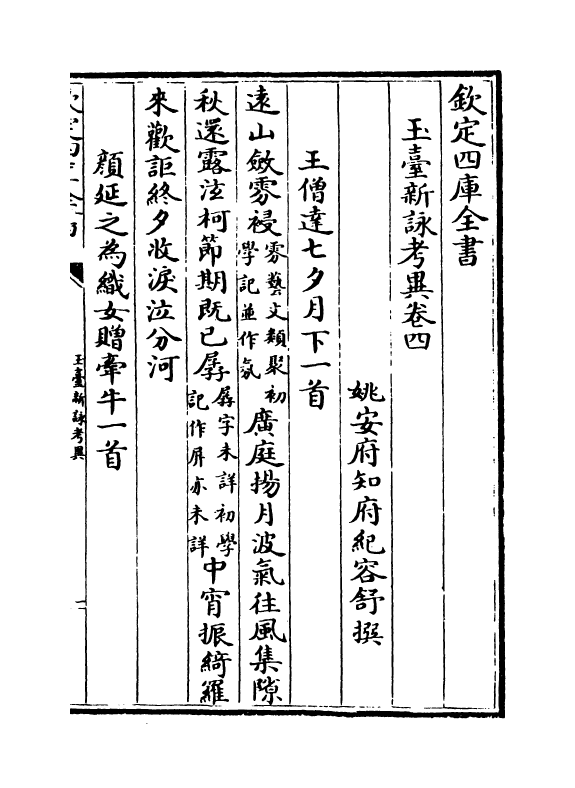 欽定四庫全書
玉臺新詠考異卷四
姚安府知府紀容舒撰
王僧達七夕月下一首
遠山斂雰祲雰藝文類聚初學記並作氛廣庭揚月波氣往風集隙
秋還露泫柯節期既已孱孱字未詳初學記作屏亦未詳中宵振綺羅
來歡詎終夕收淚泣分河
顔延之為織女贈牽牛一首
玉臺新詠考異
一